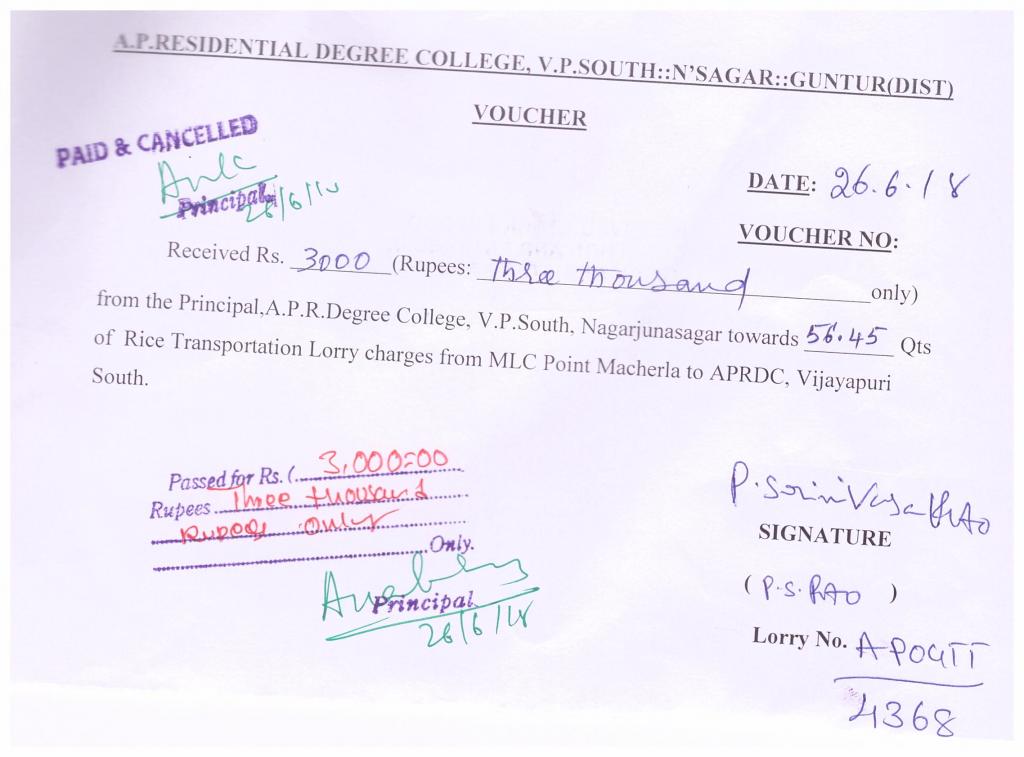 A.P.RESIDENTIAL DEGREE COLLEGE, V.P.SOUTH::N'SAGAR::GUNTUR(DIST)
VOUCHER
PAID & CANCELLED
Principal
26/6/18
DATE: 26.6.18
VOUCHER NO:
Received Rs. 3000 (Rupees: three thousand only)
from the Principal,A.P.R.Degree College, V.P.South, Nagarjunasagar towards 56.45 Qts
of Rice Transportation Lorry charges from MLC Point Macherla to APRDC, Vijayapuri
South.
Passed for Rs. (. 3,000=00
Rupees Three thousand
Rupees only
Only.
Principal
26/6/18
P. Srinivasa Rao
SIGNATURE
( P.S. RAO )
Lorry No. AP04TT
4368